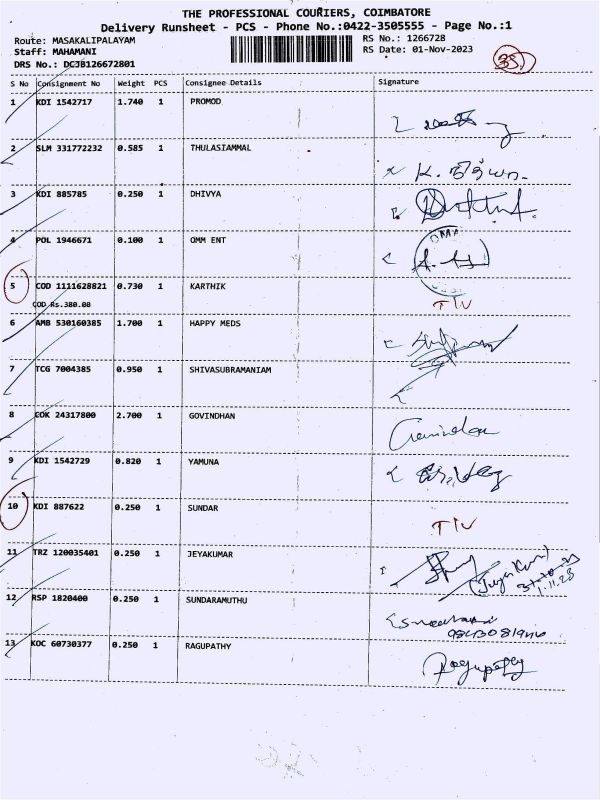 THE PROFESSIONAL COURIERS, COIMBATORE
Delivery Runsheet - PCS - Phone No.:0422-3505555 - Page No.:1
Route: MASAKALIPALAYAM RS No.: 1266728
Staff: MAHAMANI RS Date: 01-Nov-2023
DRS No.: DCJB126672801
S No Consignment No Weight PCS Consignee Details Signature
1 KDI 1542717 1.740 1 PROMOD
2 SLM 331772232 0.585 1 THULASIAMMAL
K.
3 KDI 885785 0.250 1 DHIVYA
4 POL 1946671 0.100 1 OMM ENT
5 COD 1111628821 0.730 1 KARTHIK
COD Rs.380.00
6 AMB 530160385 1.700 1 HAPPY MEDS
7 TCG 7004385 0.950 1 SHIVASUBRAMANIAM
8 COK 24317800 2.700 1 GOVINDHAN
9 KDI 1542729 0.820 1 YAMUNA
10 KDI 887622 0.250 1 SUNDAR
11 TRZ 120035401 0.250 1 JEYAKUMAR
1.11.23
12 RSP 1820400 0.250 1 SUNDARAMUTHU
13 KOC 60730377 0.250 1 RAGUPATHY
Ragupathy